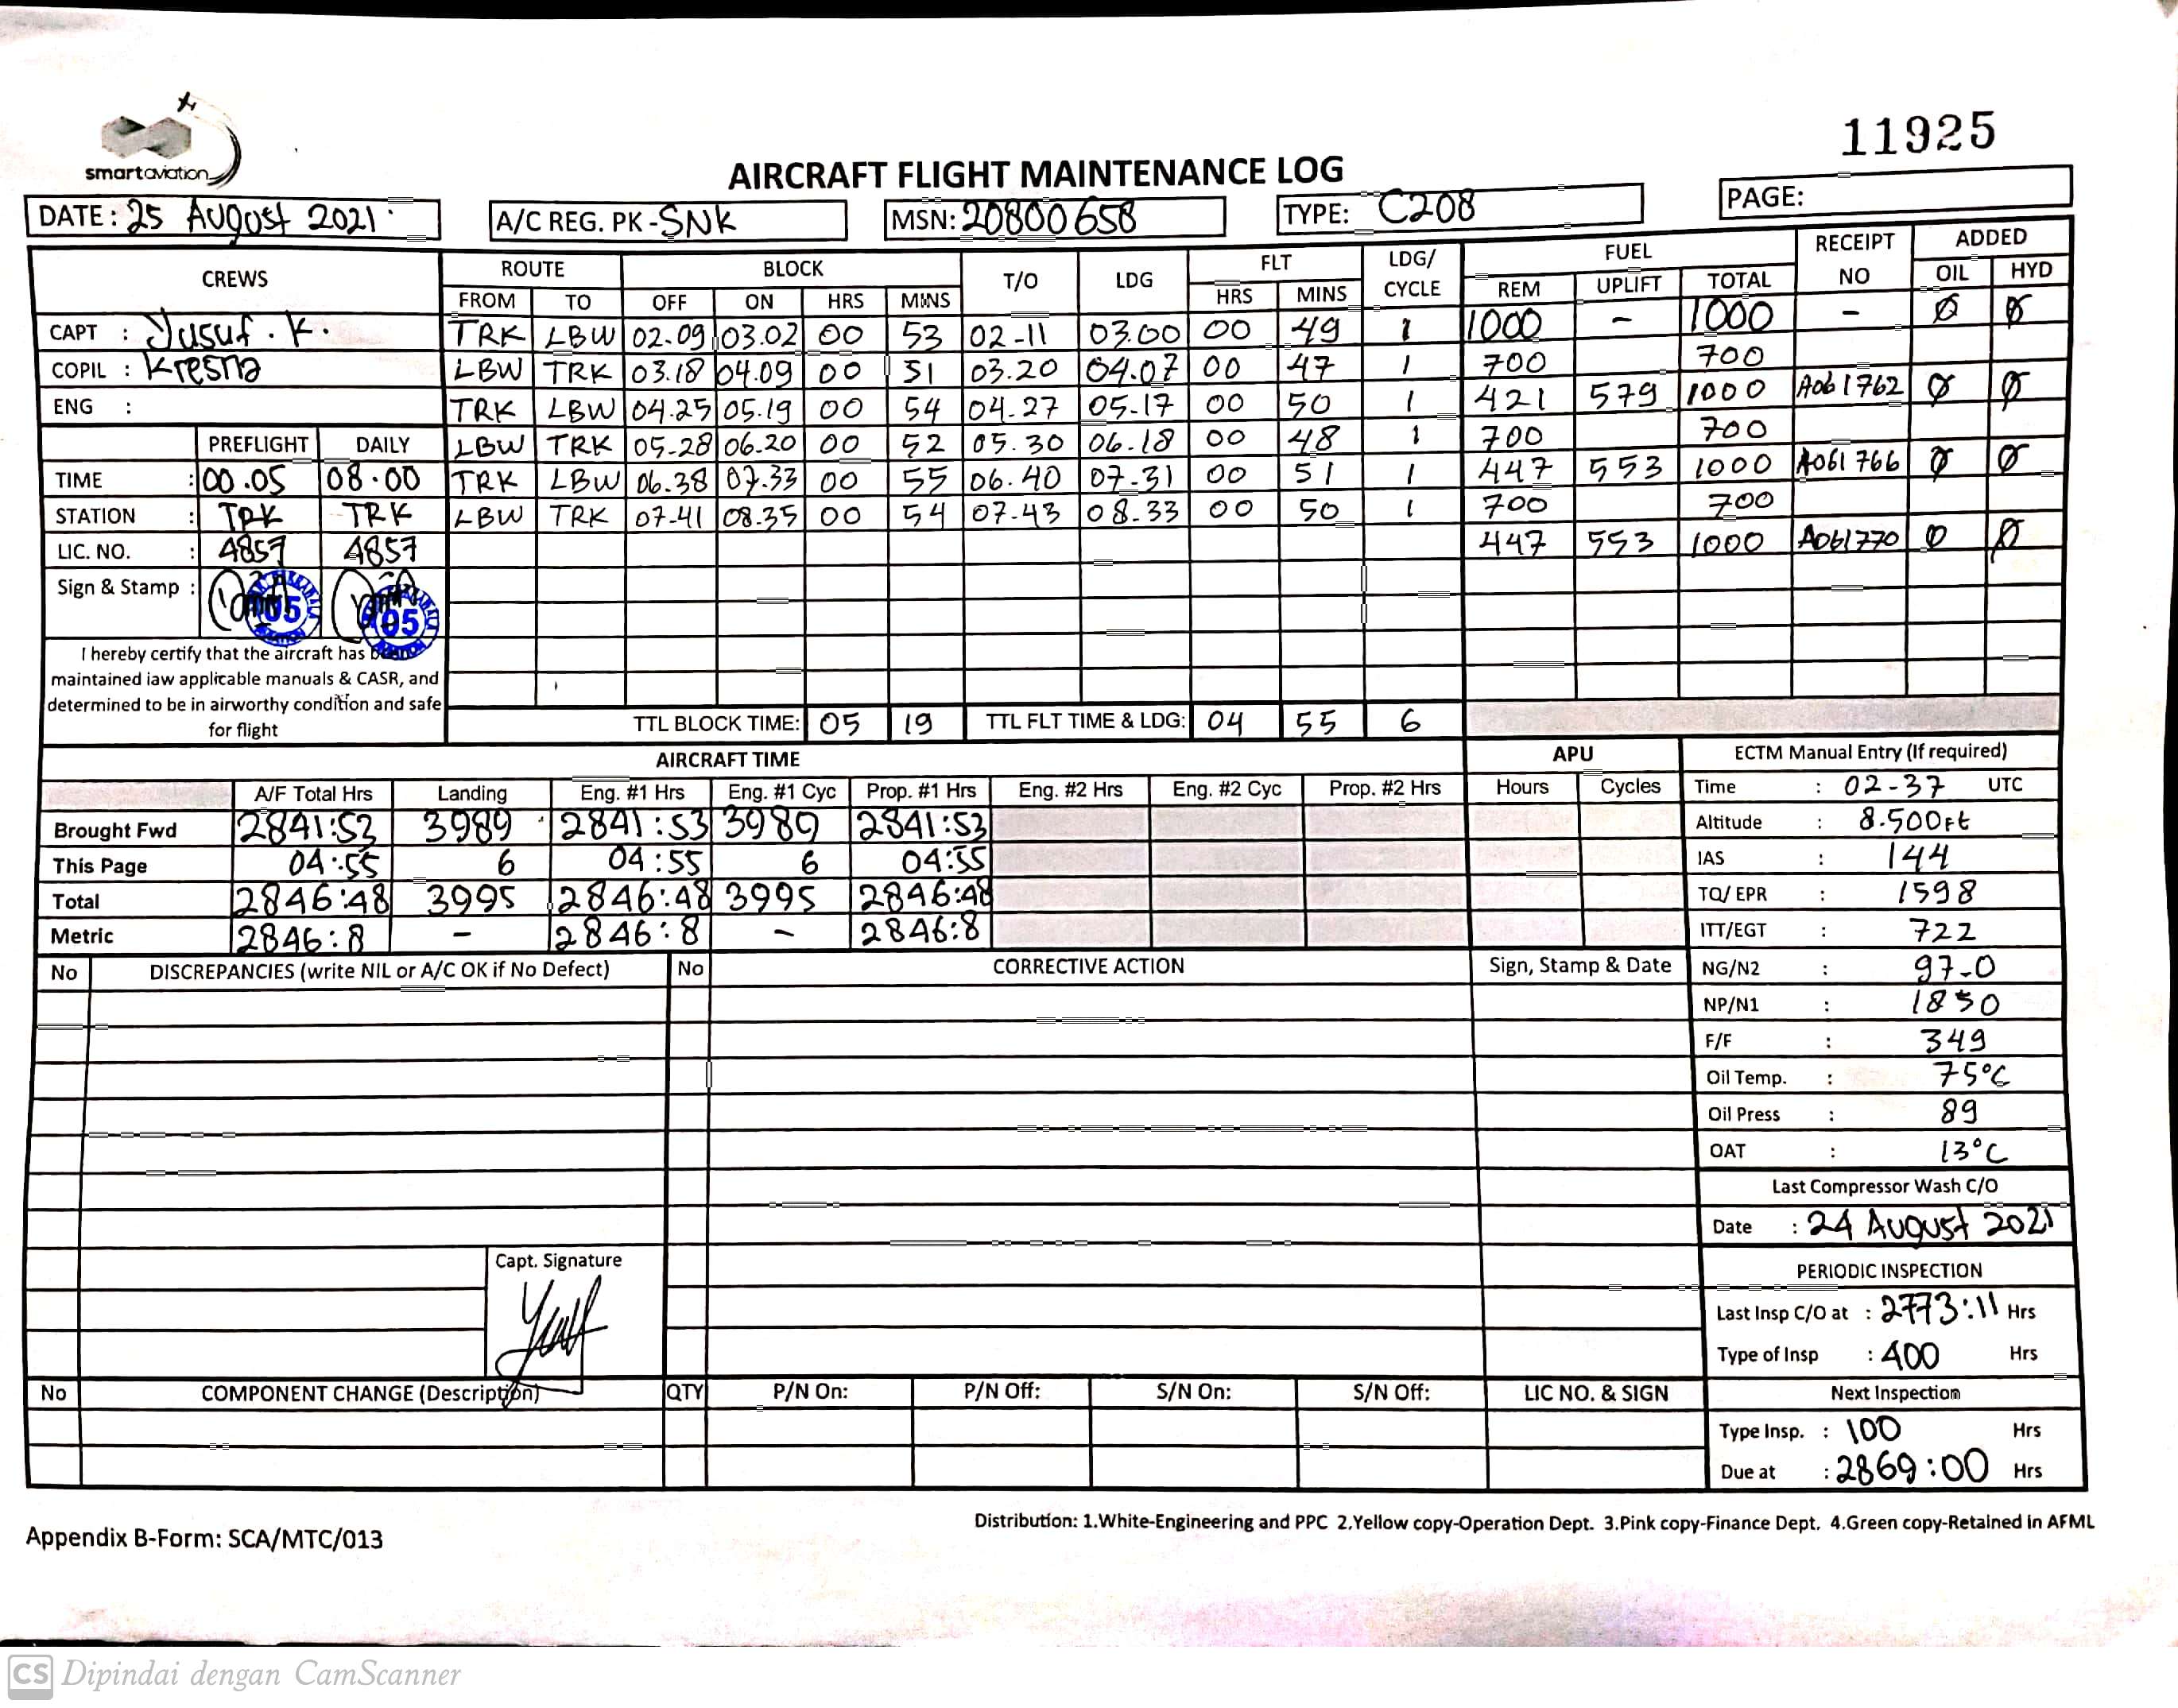 11925
smartaviation
AIRCRAFT FLIGHT MAINTENANCE LOG
DATE: 25 August 2021 A/C REG. PK-SNK MSN: 20800658 TYPE: C208 PAGE:
CREWS ROUTE BLOCK T/O LDG FLT LDG/ CYCLE FUEL RECEIPT NO ADDED
FROM TO OFF ON HRS MINS HRS MINS REM UPLIFT TOTAL OIL HYD
CAPT : Yusuf. K. TRK LBW 02.09 03.02 00 53 02-11 03.00 00 49 1 1000 - 1000 - Ø Ø
COPIL : Kresna LBW TRK 03.18 04.09 00 51 03.20 04.07 00 47 1 700 700
ENG : TRK LBW 04.25 05.19 00 54 04-27 05-17 00 50 1 421 579 1000 A061762 Ø Ø
PREFLIGHT DAILY LBW TRK 05-28 06.20 00 52 05.30 06.18 00 48 1 700 700
TIME : 00.05 08.00 TRK LBW 06.38 07.33 00 55 06.40 07-31 00 51 1 447 553 1000 A061766 Ø Ø
STATION : TRK TRK LBW TRK 07-41 08.35 00 54 07-43 08.33 00 50 1 700 700
LIC. NO. : 4857 4857 447 553 1000 A061770 Ø Ø
Sign & Stamp : 05 05
I hereby certify that the aircraft has been
maintained iaw applicable manuals & CASR, and
determined to be in airworthy condition and safe
for flight
TTL BLOCK TIME: 05 19 TTL FLT TIME & LDG: 04 55 6
AIRCRAFT TIME APU ECTM Manual Entry (If required)
A/F Total Hrs Landing Eng. #1 Hrs Eng. #1 Cyc Prop. #1 Hrs Eng. #2 Hrs Eng. #2 Cyc Prop. #2 Hrs Hours Cycles Time : 02-37 UTC
Brought Fwd 2841:53 3989 2841:53 3989 2841:53 Altitude : 8.500ft
This Page 04:55 6 04:55 6 04:55 IAS : 144
Total 2846:48 3995 2846:48 3995 2846:48 TQ/ EPR : 1598
Metric 2846:8 - 2846:8 - 2846:8 ITT/EGT : 722
No DISCREPANCIES (write NIL or A/C OK if No Defect) No CORRECTIVE ACTION Sign, Stamp & Date NG/N2 : 97-0
NP/N1 : 1850
F/F : 349
Oil Temp. : 75°C
Oil Press : 89
OAT : 13°C
Last Compressor Wash C/O
Date : 24 August 2021
Capt. Signature
PERIODIC INSPECTION
Last Insp C/O at : 2773:11 Hrs
Type of Insp : 400 Hrs
No COMPONENT CHANGE (Description) QTY P/N On: P/N Off: S/N On: S/N Off: LIC NO. & SIGN Next Inspection
Type Insp. : 100 Hrs
Due at : 2869:00 Hrs
Appendix B-Form: SCA/MTC/013
Distribution: 1.White-Engineering and PPC 2.Yellow copy-Operation Dept. 3.Pink copy-Finance Dept. 4.Green copy-Retained in AFML
CS Dipindai dengan CamScanner